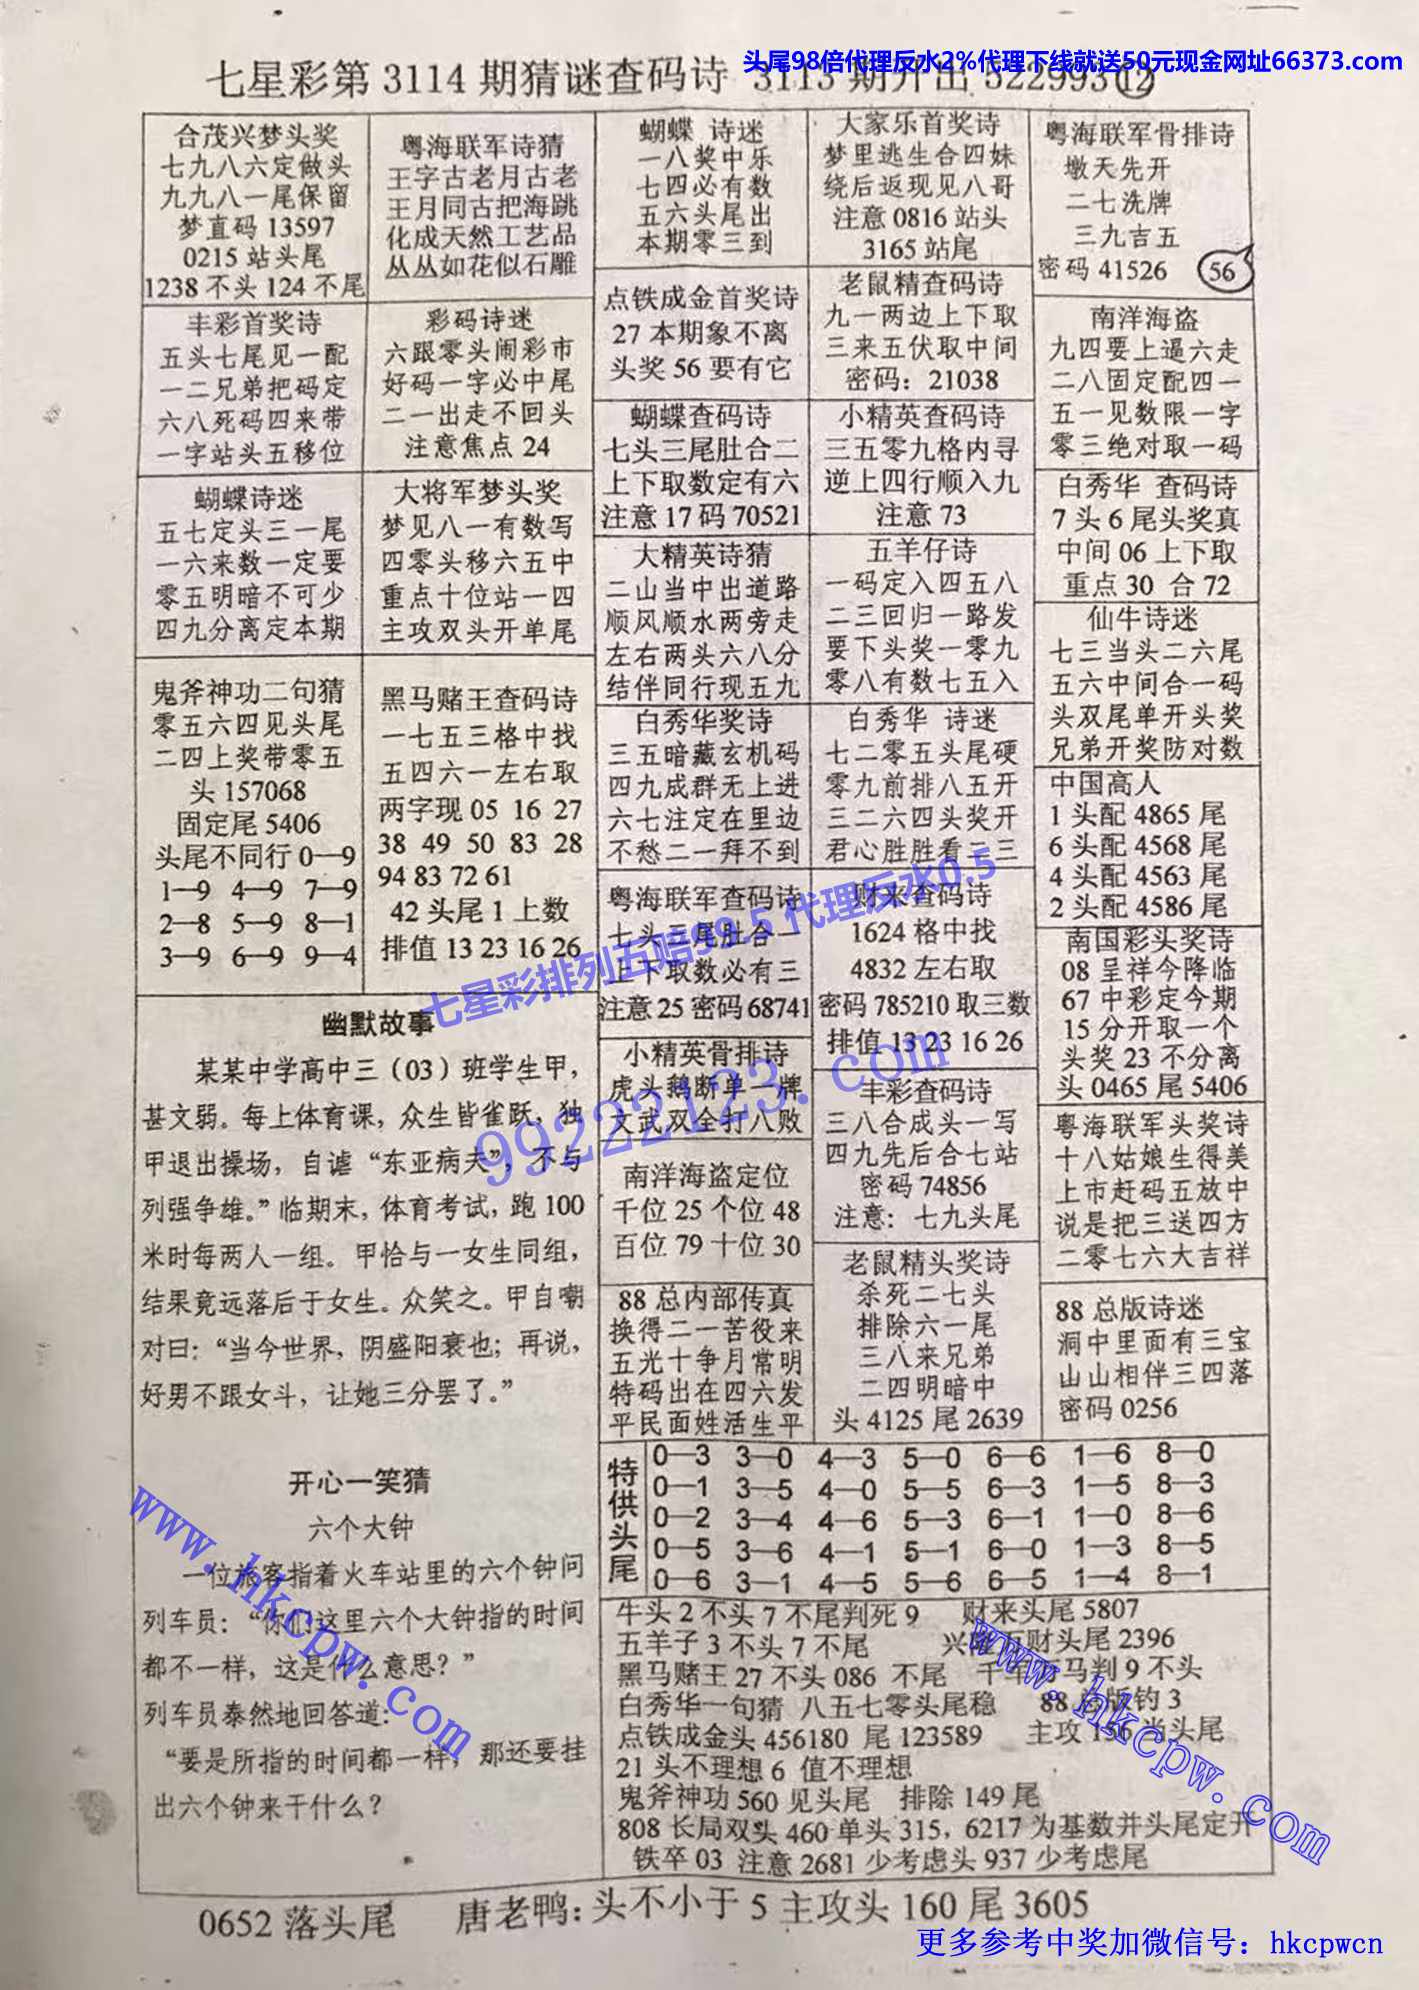 头尾98倍代理反水2%代理下线就送50元现金网址66373.com
七星彩第3114期猜谜查码诗 3113期开出522993⑫
合茂兴梦头奖
七九八六定做头
九九八一尾保留
梦直码13597
0215站头尾
1238不头124不尾
丰彩首奖诗
五头七尾见一配
一二兄弟把码定
六八死码四来带
一字站头五移位
蝴蝶诗迷
五七定头三一尾
一六来数一定要
零五明暗不可少
四九分离定本期
鬼斧神功二句猜
零五六四见头尾
二四上奖带零五
头157068
固定尾5406
头尾不同行0—9
1—9 4—9 7—9
2—8 5—9 8—1
3—9 6—9 9—4
粤海联军诗猜
王字古老月古老
王月同古把海跳
化成天然工艺品
丛丛如花似石雕
彩码诗迷
六跟零头闹彩市
好码一字必中尾
二一出走不回头
注意焦点24
大将军梦头奖
梦见八一有数写
四零头移六五中
重点十位站一四
主攻双头开单尾
黑马赌王查码诗
一七五三格中找
五四六一左右取
两字现05 16 27
38 49 50 83 28
94 83 72 61
42头尾1上数
排值13 23 16 26
幽默故事
某某中学高中三（03）班学生甲，
甚文弱。每上体育课，众生皆雀跃，独
甲退出操场，自谑“东亚病夫”，不与
列强争雄。”临期末，体育考试，跑100
米时每两人一组。甲恰与一女生同组，
结果竟远落后于女生。众笑之。甲自嘲
对曰：“当今世界，阴盛阳衰也；再说，
好男不跟女斗，让她三分罢了。”
开心一笑猜
六个大钟
一位旅客指着火车站里的六个钟问
列车员：“你们这里六个大钟指的时间
都不一样，这是什么意思？”
列车员泰然地回答道：
“要是所指的时间都一样，那还要挂
出六个钟来干什么？
蝴蝶 诗迷
一八奖中乐
七四必有数
五六头尾出
本期零三到
点铁成金首奖诗
27本期象不离
头奖56要有它
蝴蝶查码诗
七头三尾肚合二
上下取数定有六
注意17码70521
大精英诗猜
二山当中出道路
顺风顺水两旁走
左右两头六八分
结伴同行现五九
白秀华奖诗
三五暗藏玄机码
四九成群无上进
六七注定在里边
不愁二一拜不到
粤海联军查码诗
七头三尾肚合一
上下取数必有三
注意25密码68741
小精英骨排诗
虎头鹅断单一牌
文武双全打八败
南洋海盗定位
千位25个位48
百位79十位30
88总内部传真
换得二一苦役来
五光十争月常明
特码出在四六发
平民面姓活生平
大家乐首奖诗
梦里逃生合四妹
绕后返现见八哥
注意0816站头
3165站尾
老鼠精查码诗
九一两边上下取
三来五伏取中间
密码：21038
小精英查码诗
三五零九格内寻
逆上四行顺入九
注意73
五羊仔诗
一码定入四五八
二三回归一路发
要下头奖一零九
零八有数七五入
白秀华 诗迷
七二零五头尾硬
零九前排八五开
三二六四头奖开
君心胜胜看二三
财来查码诗
1624格中找
4832左右取
密码785210取三数
排值13 23 16 26
丰彩查码诗
三八合成头一写
四九先后合七站
密码74856
注意：七九头尾
老鼠精头奖诗
杀死二七头
排除六一尾
三八来兄弟
二四明暗中
头4125尾2639
粤海联军骨排诗
墩天先开
二七洗牌
三九吉五
密码41526 56
南洋海盗
九四要上逼六走
二八固定配四一
五一见数限一字
零三绝对取一码
白秀华 查码诗
7头6尾头奖真
中间06上下取
重点30 合72
仙牛诗迷
七三当头二六尾
五六中间合一码
头双尾单开头奖
兄弟开奖防对数
中国高人
1头配4865尾
6头配4568尾
4头配4563尾
2头配4586尾
南国彩头奖诗
08呈祥今降临
67中彩定今期
15分开取一个
头奖23不分离
头0465尾5406
粤海联军头奖诗
十八姑娘生得美
上市赶码五放中
说是把三送四方
二零七六大吉祥
88总版诗迷
洞中里面有三宝
山山相伴三四落
密码0256
特供头尾
0—3 3—0 4—3 5—0 6—6 1—6 8—0
0—1 3—5 4—0 5—5 6—3 1—5 8—3
0—2 3—4 4—6 5—3 6—1 1—0 8—6
0—5 3—6 4—1 5—1 6—0 1—3 8—5
0—6 3—1 4—5 5—6 6—5 1—4 8—1
牛头2不头7不尾判死9 财来头尾5807
五羊子3不头7不尾 兴旺万财头尾2396
黑马赌王27不头086 不尾 千军万马判9不头
白秀华一句猜 八五七零头尾稳 88总版钓3
点铁成金头456180 尾123589 主攻156当头尾
21头不理想6 值不理想
鬼斧神功560见头尾 排除149尾
808长局双头460单头315，6217为基数并头尾定开
铁卒03 注意2681少考虑头937少考虑尾
0652落头尾 唐老鸭：头不小于5主攻头160尾3605
七星彩排列五赔99.5代理反水0.5
99222123.com
www.hkcpw.com
www.hkcpw.com
更多参考中奖加微信号：hkcpwcn